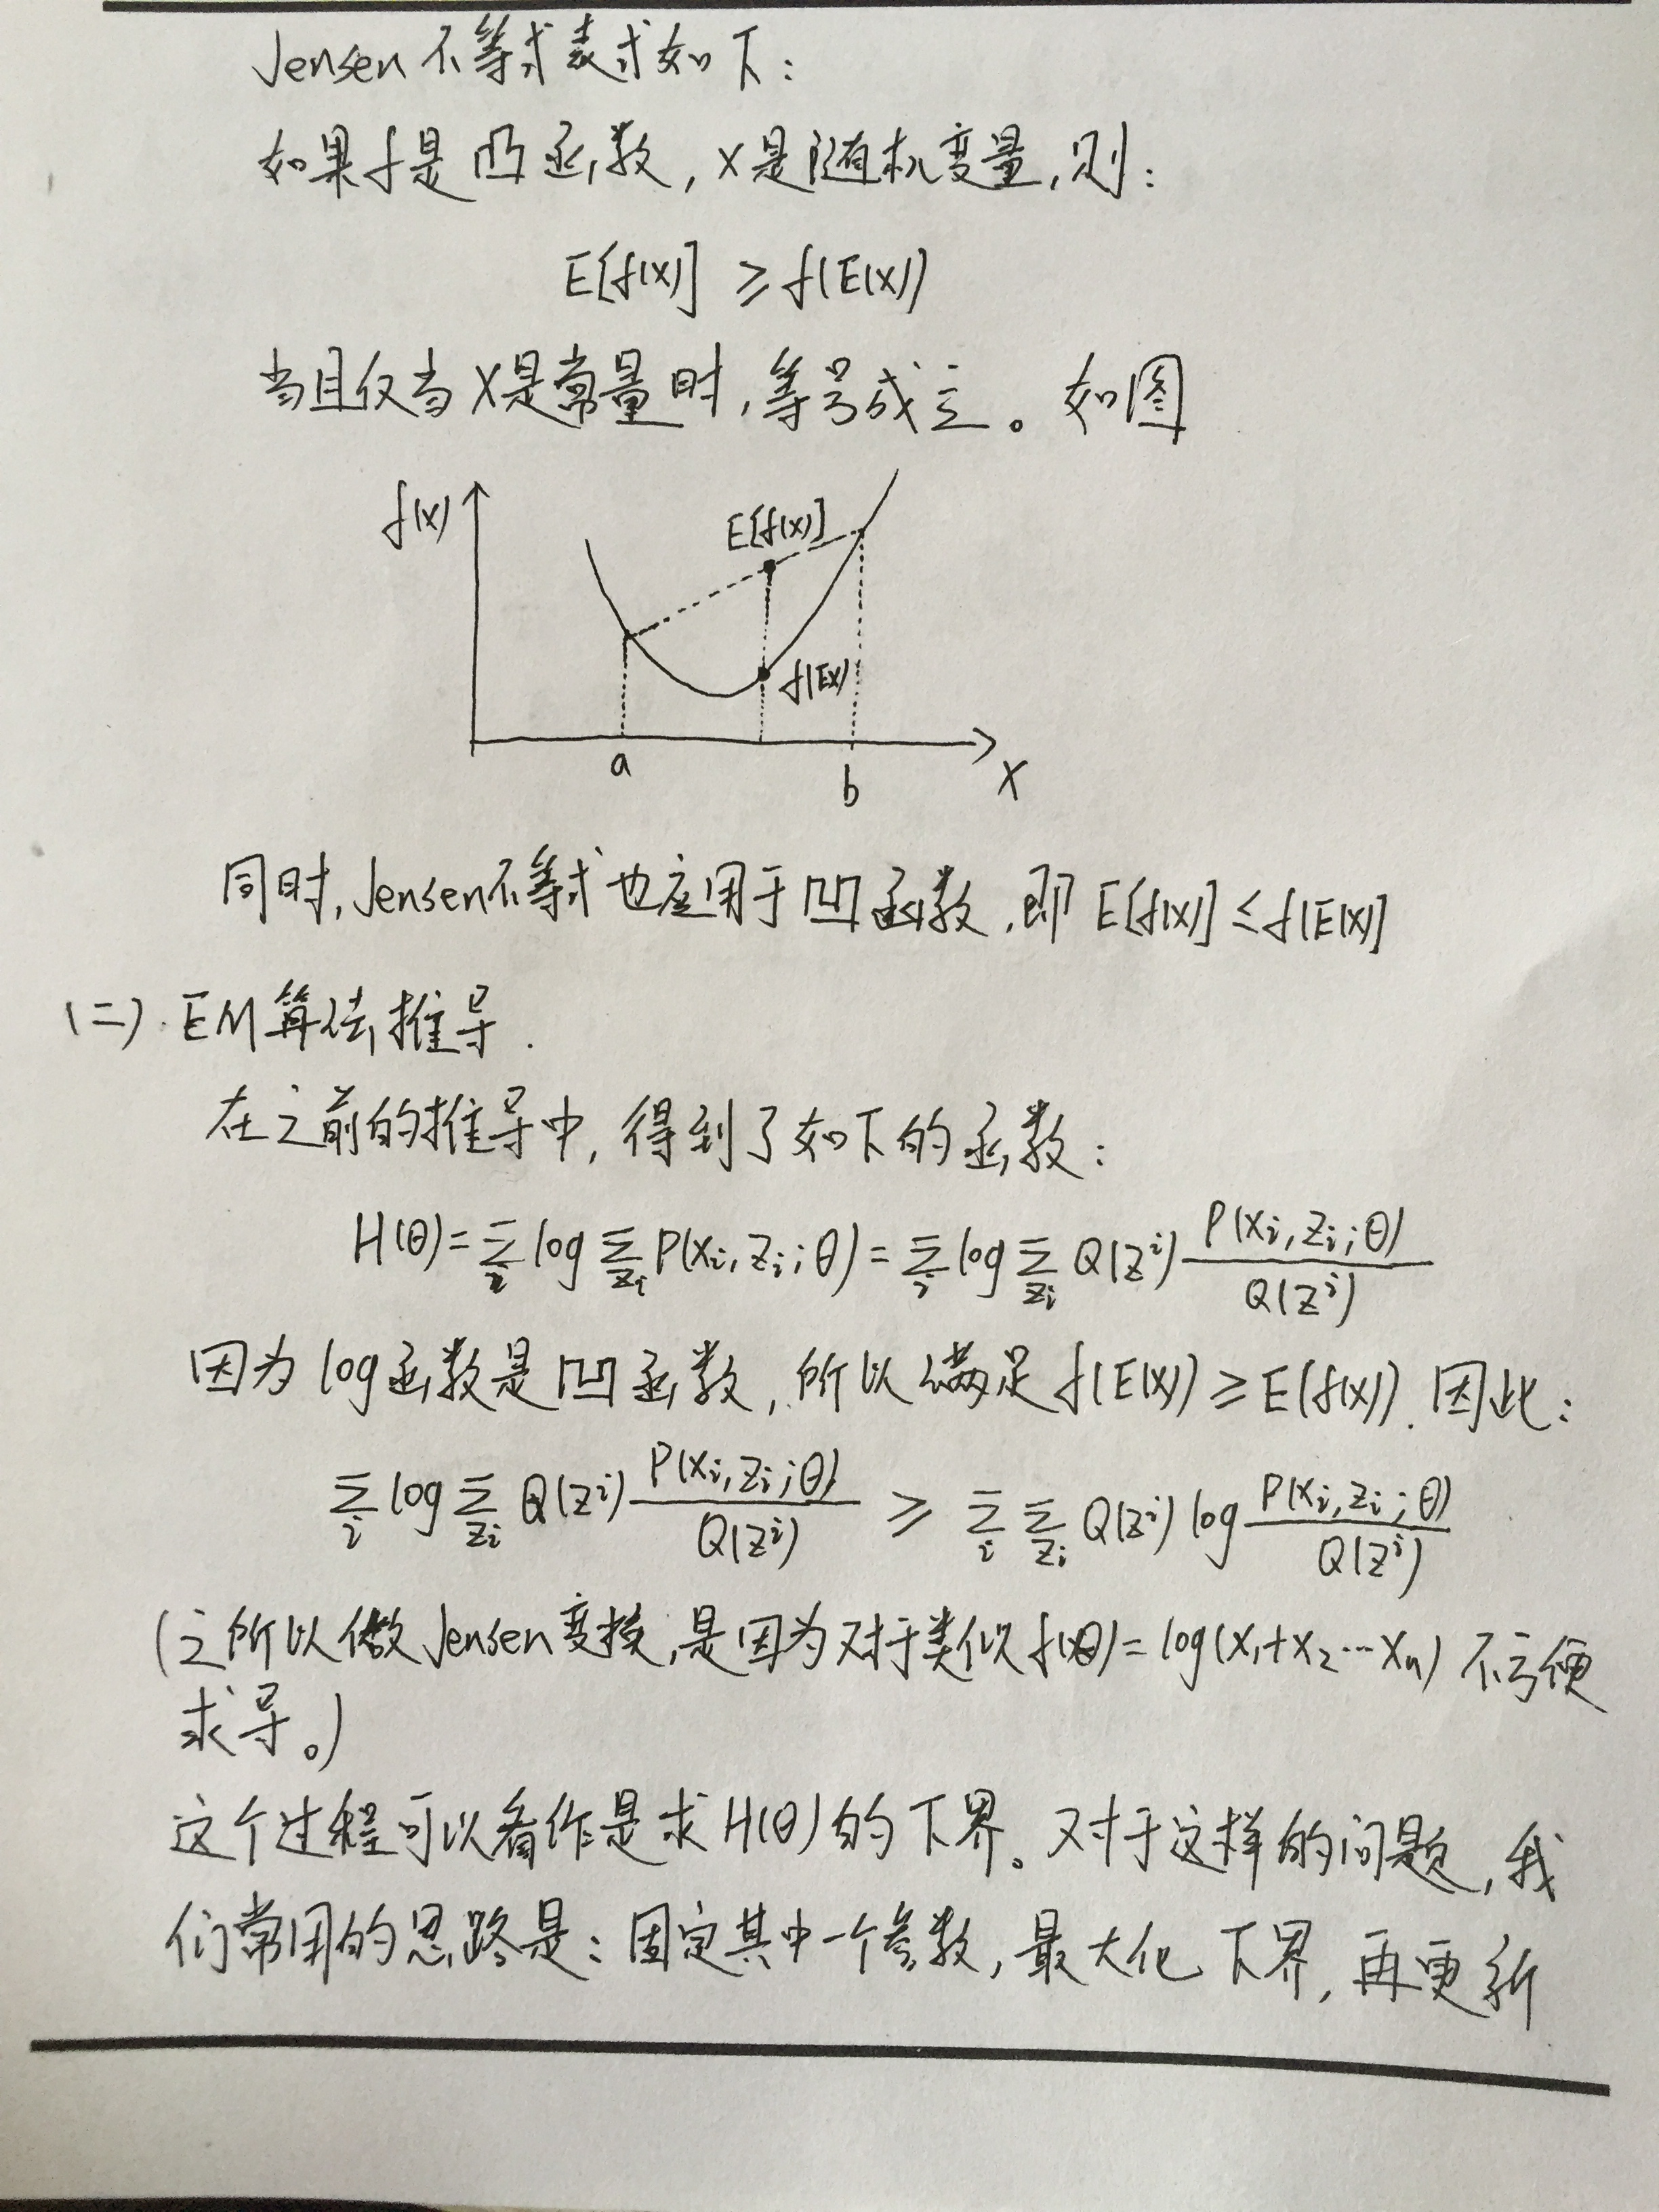 Jensen不等式表式如下:
如果f是凸函数, X是随机变量,则:
E[f(x)] ≥ f(E(x))
当且仅当X是常量时,等号成立。如图
f(x)
E[f(x)]
f(Ex)
a
b
X
同时,Jensen不等式也应用于凹函数,即 E[f(x)] ≤ f(E(x)]
(二). EM算法推导.
在之前的推导中,得到了如下的函数:
H(θ)=∑i log ∑zi P(xi,zi;θ) = ∑i log ∑zi Q(z^i) P(xi,zi;θ)/Q(z^i)
因为log函数是凹函数,所以满足f(E(x)) ≥ E(f(x)).因此:
∑i log ∑zi Q(z^i) P(xi,zi;θ)/Q(z^i) ≥ ∑i ∑zi Q(z^i) log P(xi,zi;θ)/Q(z^i)
(之所以做Jensen变换,是因为对于类似f(θ)=log(x1+x2…xn) 不方便
求导。)
这个过程可以看作是求H(θ)的下界。对于这样的问题,我
们常用的思路是:固定其中一个参数,最大化下界,再更新